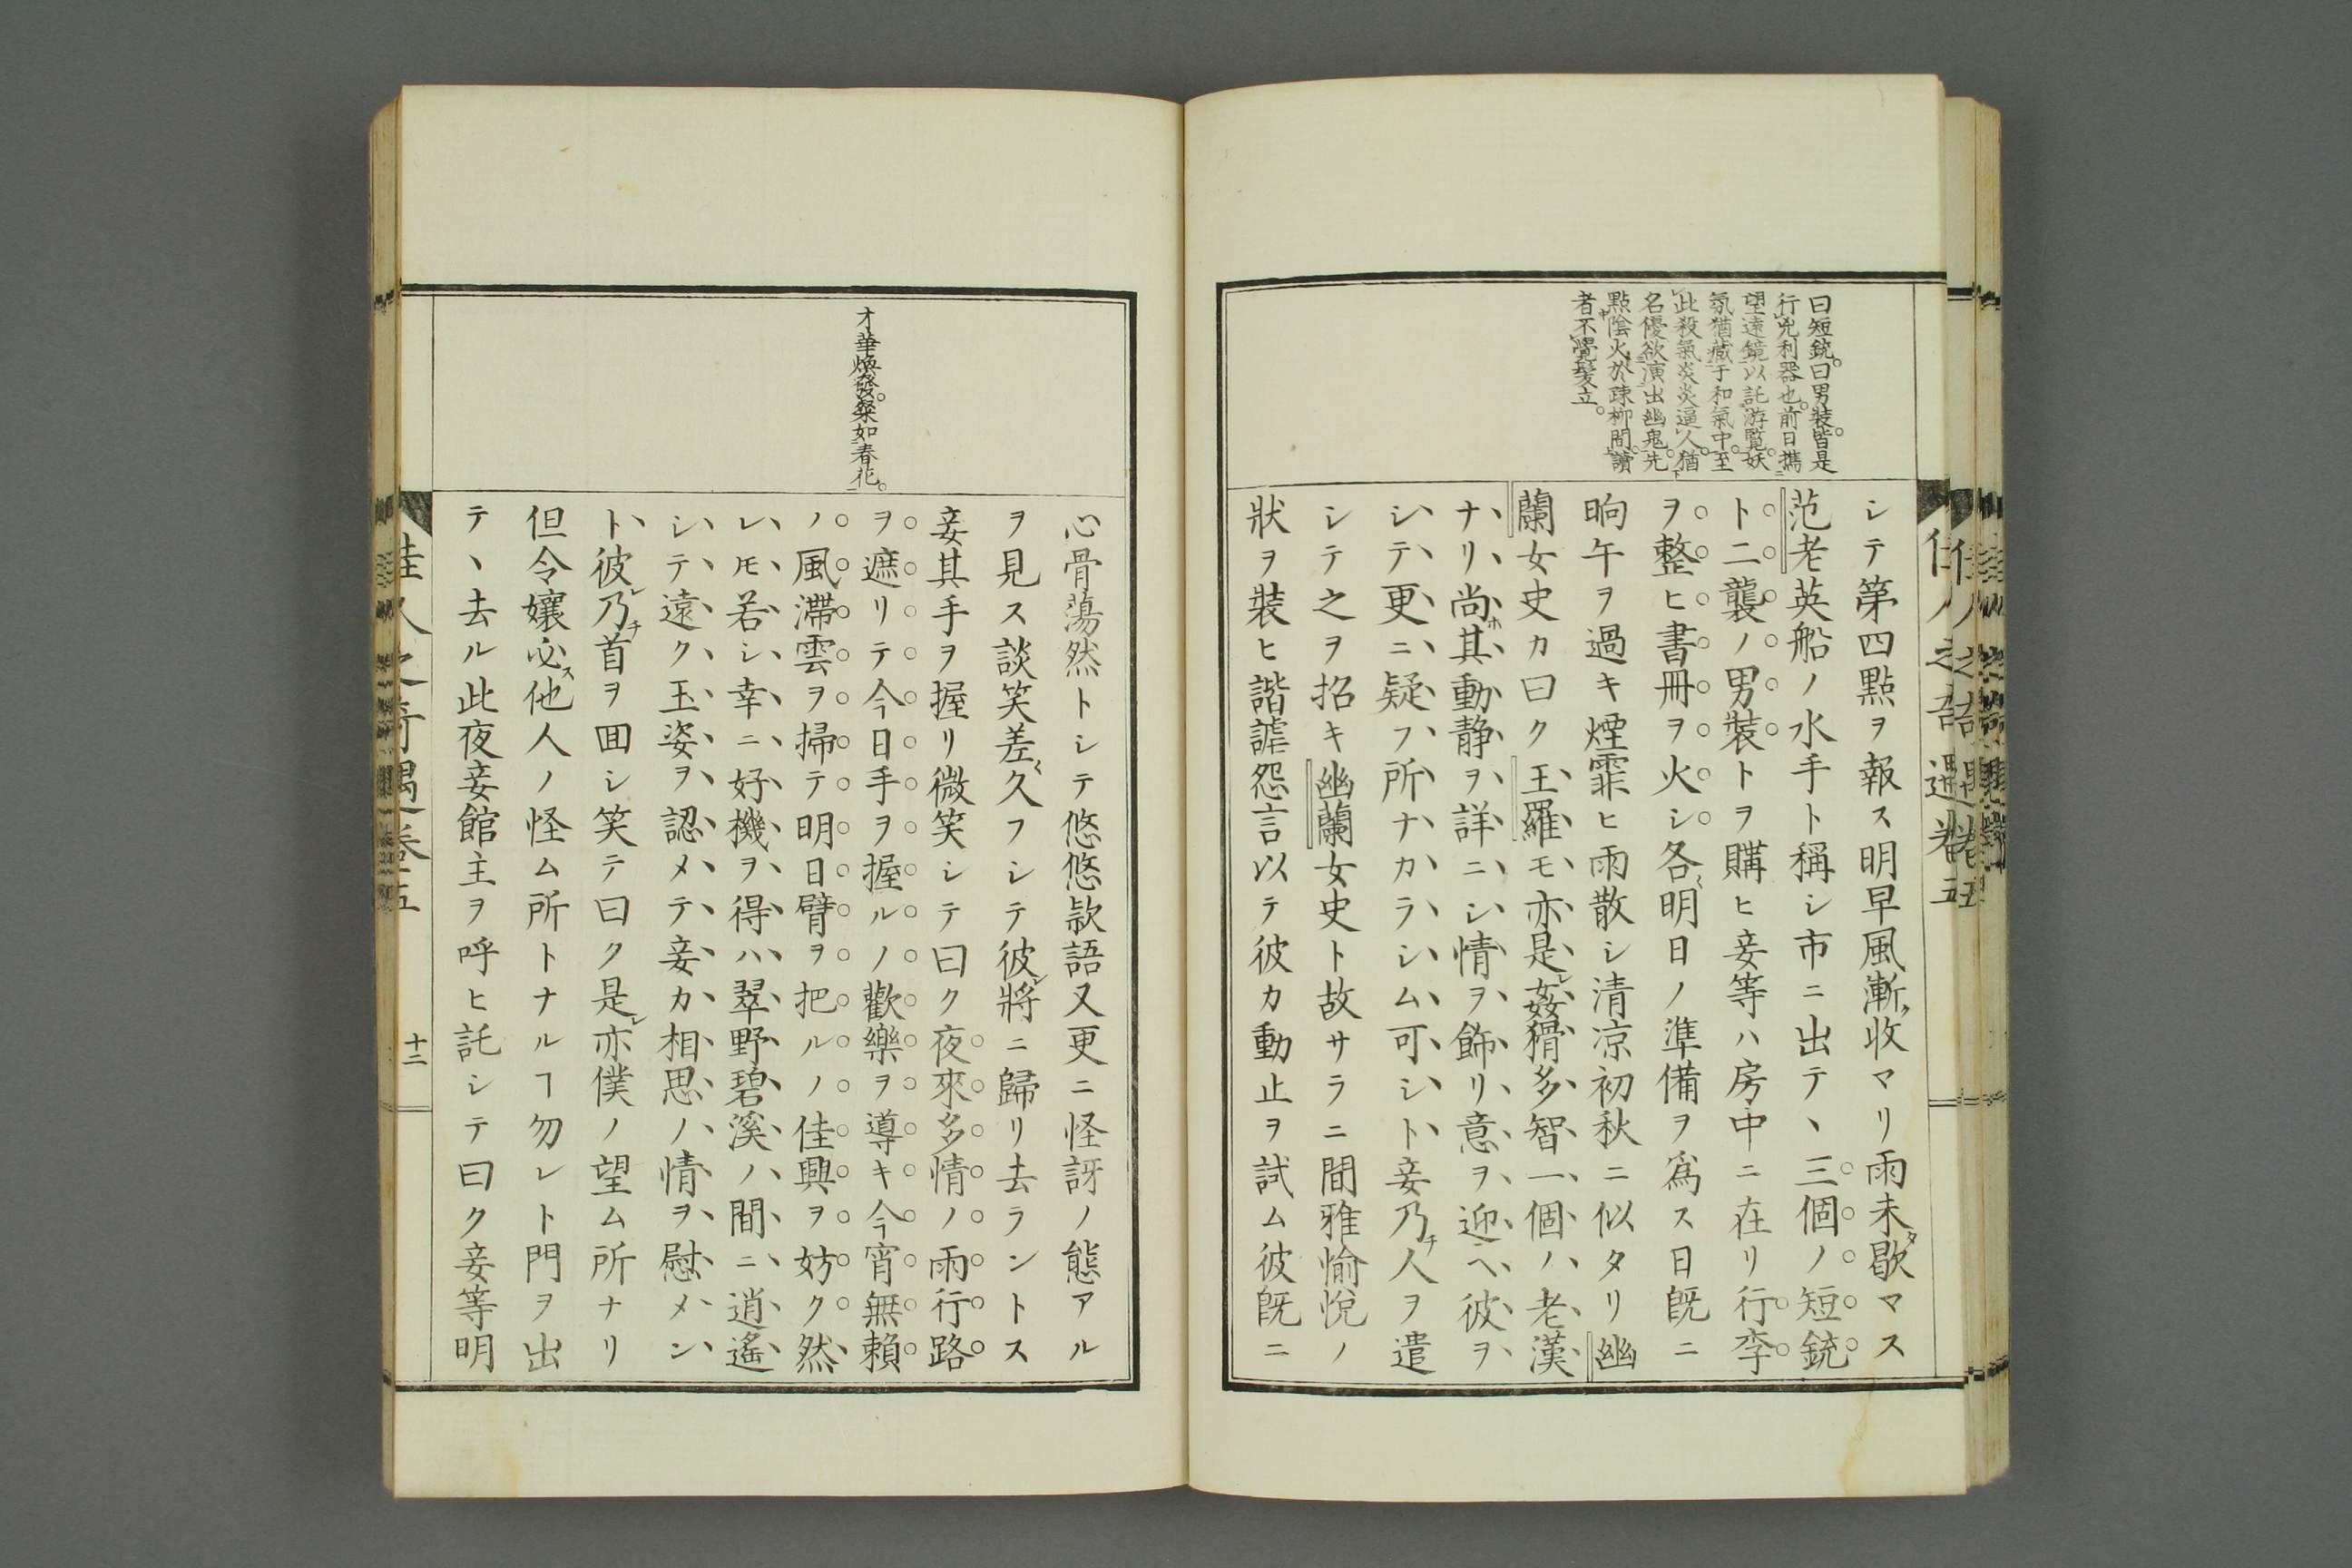 曰短銃。曰男裝。皆是
行兇利器也。前日携
望遠鏡以託游覧。妖
氛猶藏于和氣中。至
此殺氣炎炎逼人。猶
名優欲演出幽鬼。先
點陰火於疎柳間。讀
者不覺髮立。
シテ第四點ヲ報ス明早風漸ク收マリ雨未タ歇マス
范老英船ノ水手ト稱シ市ニ出テヽ三個ノ短銃
ト二襲ノ男裝トヲ購ヒ妾等ハ房中ニ在リ行李
ヲ整ヒ書冊ヲ火シ各〻明日ノ準備ヲ爲ス日既ニ
晌午ヲ過キ煙霏ヒ雨散シ清凉初秋ニ似タリ幽
蘭女史カ曰ク王羅モ亦是レ姦猾多智一個ノ老漢
ナリ尚ホ其動静ヲ詳ニシ情ヲ飾リ意ヲ迎ヘ彼ヲ
シテ更ニ疑フ所ナカラシム可シト妾乃チ人ヲ遣
シテ之ヲ招キ幽蘭女史ト故サラニ閒雅愉悅ノ
狀ヲ裝ヒ諧謔怨言以テ彼カ動止ヲ試ム彼既ニ
佳人之奇遇卷五
才華煥發。粲如春花。
心骨蕩然トシテ悠悠款語又更ニ怪訝ノ態アル
ヲ見ス談笑差〻久フシテ彼レ將ニ歸リ去ラントス
妾其手ヲ握リ微笑シテ曰ク夜來多情ノ雨行路
ヲ遮リテ今日手ヲ握ルノ歡樂ヲ導キ今宵無賴
ノ風滯雲ヲ掃テ明日臂ヲ把ルノ佳興ヲ妨ク然
レモ若シ幸ニ好機ヲ得ハ翠野碧溪ノ間ニ逍遙
シテ遠ク玉姿ヲ認メテ妾カ相思ノ情ヲ慰メン
ト彼レ乃チ首ヲ囬シ笑テ曰ク是レ亦僕ノ望ム所ナリ
但令孃必ス他人ノ怪ム所トナルヿ勿レト門ヲ出
テヽ去ル此夜妾館主ヲ呼ヒ託シテ曰ク妾等明
佳人之奇遇卷五
十二